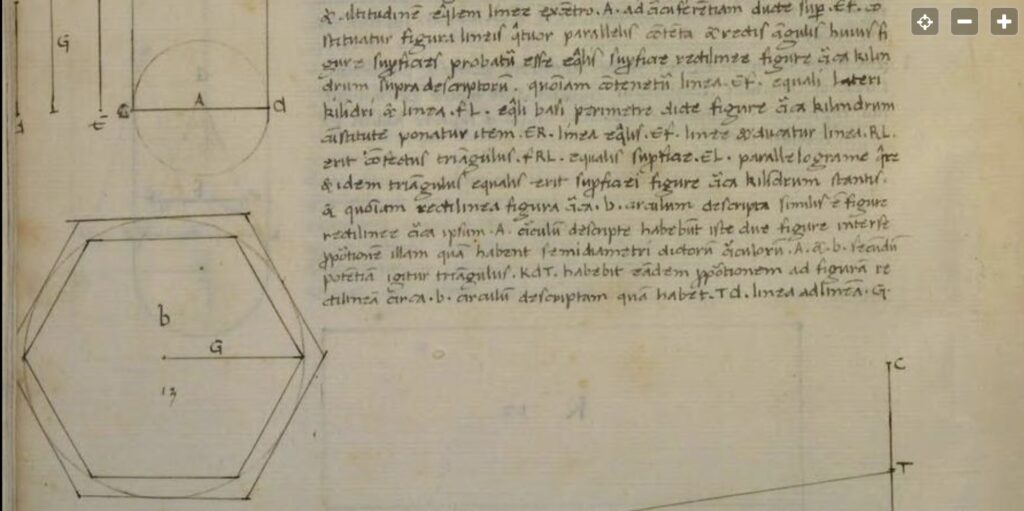 & altitudinē eq̄lem linee excētro. A. ad circūferētiam ducte sup̄. Ef. co
stituatur figura lineis q̄tuor parallelis cōtēta & rectis āgulis huius fi
gure supficies probatū esse eq̄lis supficie rectilinee figure c̄ica kilin
drum supra descriptorū. quoiam cōtenetū linea. Ef. equali lateri
kilidri & linea. f L. eq̄li basi perimetre dicte figure c̄ica kilindrum
cūstitute ponatur item. ER. linea eq̄lis. Ef. linee & ducatur linea. RL.
erit triāgulus. f RL. equalis supficie. EL. parallelograme
& idem triāgulus equalis erit supficiei figure c̄ica kilidrum stantis.
& quoīam rectilinea figura c̄ica. b. circulum descripta similis ē figure
rectilinee c̄ica ipsum. A. c̄iculū descripte habebūt iste due figure interse
ꝓpōtionē illam quā habent semidiametri dictorū c̄iculorū. A. & b. secūdū
potētiā igitur triāgulus. KdT. habebit eādem ꝓpōtionem ad figurā re
ctilineā circa. b. circulū descriptam quā habēt. Td. linea ad lineā. G.
G
A
d
b
G
13
C
T